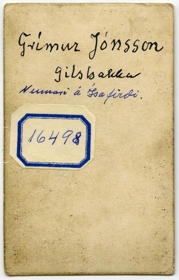 Grímur Jónsson
Gilsbakka
Kennari á Ísafirði.
16498